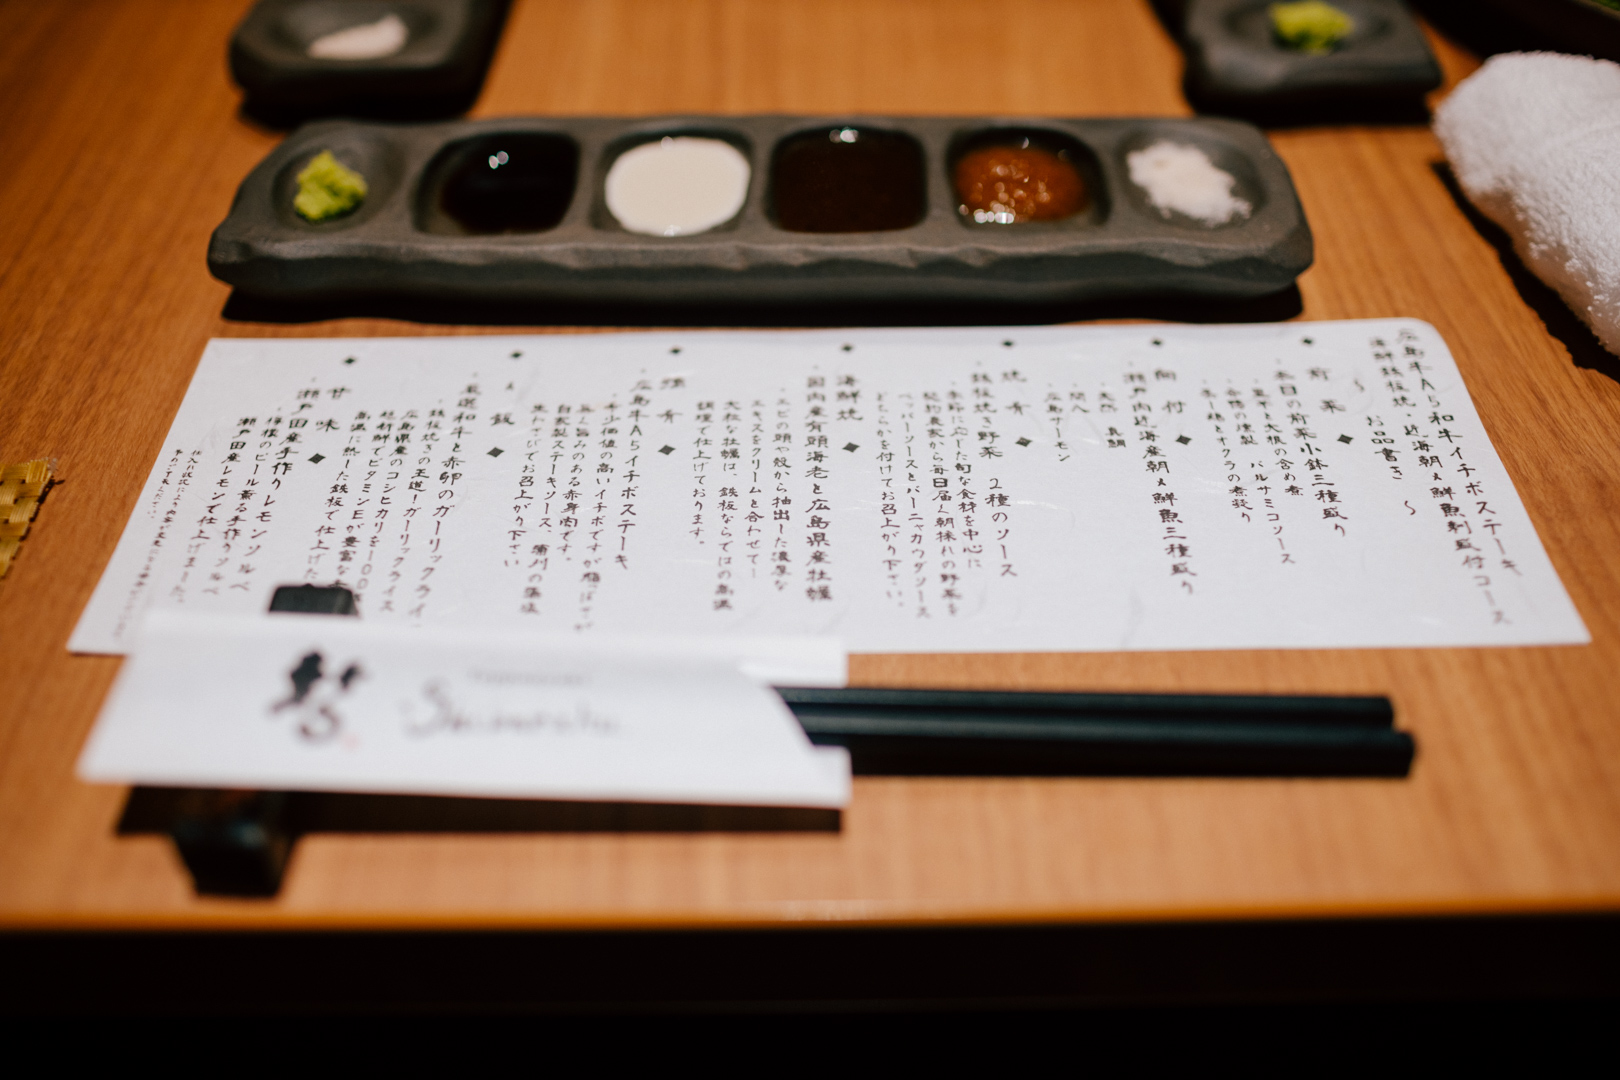 広島牛A5和牛イチボステーキ
海鮮鉄板焼・近海朝〆鮮魚刺盛付コース
〜 お品書き 〜
◆ 前菜 ◆
・本日の前菜小鉢三種盛り
◆ 向付 ◆
・瀬戸内近海産朝〆鮮魚三種盛り
天然 真鯛
間八
広島サーモン
◆ 焼肴 ◆
・鉄板焼き野菜 2種のソース
季節に応じた旬な食材を中心に
契約農家から毎日届く朝採れの野菜を
ペッパーソースとバーニャカウダソース
どちらかを付けてお召上がり下さい。
◆ 海鮮焼 ◆
国内産有頭海老と広島県産牡蠣
エビの頭や殻から抽出した濃厚な
エキスをクリームと合わせて
大粒な牡蠣は、鉄板ならではの高温
調理で仕上げております。
◆ 強肴 ◆
・広島牛A5イチボステーキ
希少価値の高いイチボですが
旨みのある赤身肉です。
自家製ステーキソース、蒲刈の藻塩
わさびでお召上がり下さい
◆ 飯 ◆
和牛と赤卵のガーリックライ
・鉄板焼きの王道!ガーリックライス
広島県産のコシヒカリを100
新鮮でビタミンEが豊富な
高温に熱した鉄板で仕上げた
◆ 甘味 ◆
・瀬戸田産手作りレモンソルベ
檸檬のピール薫る手作りソルベ
瀬戸田産レモンで仕上げました。